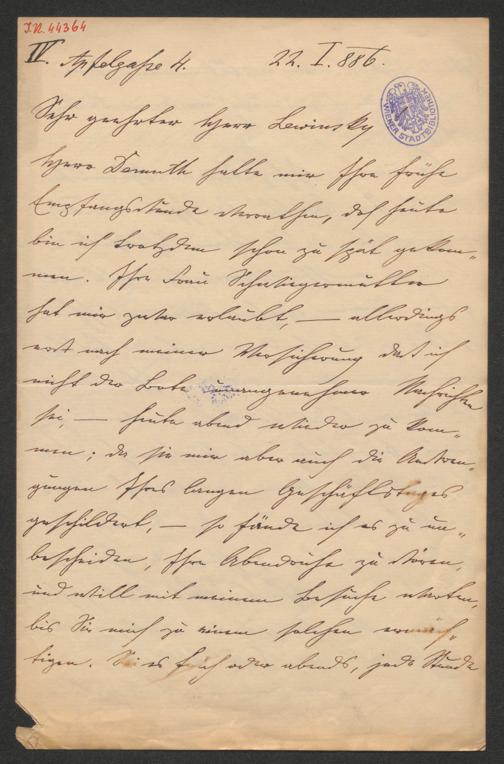 J.N. 44364
IV. Apfelgasse 4. 22. I. 886.
WIENER STADTBIBLIOTHEK
Sehr geehrter Herr Lewinsky
Herr Demuth hatte mir Ihre frühe
Empfangsstunde verrathen, doch heute
bin ich trotzdem schon zu spät gekom-
men. Ihre Frau Schwiegermutter
hat mir zwar erlaubt, — allerdings
erst nach meiner Versicherung daß ich
nicht der Bote unangenehmer Nachrichten
sei, — heute abend wieder zu kom-
men; da sie mir aber auch die Anstren-
gungen Ihres langen Geschäftstages
geschildert, — so fände ich es zu un-
bescheiden, Ihre Abendruhe zu stören,
und will mit meinem Besuche warten,
bis Sie mich zu einem solchen ermäch-
tigen. Sei es früh oder abends, jede Stunde